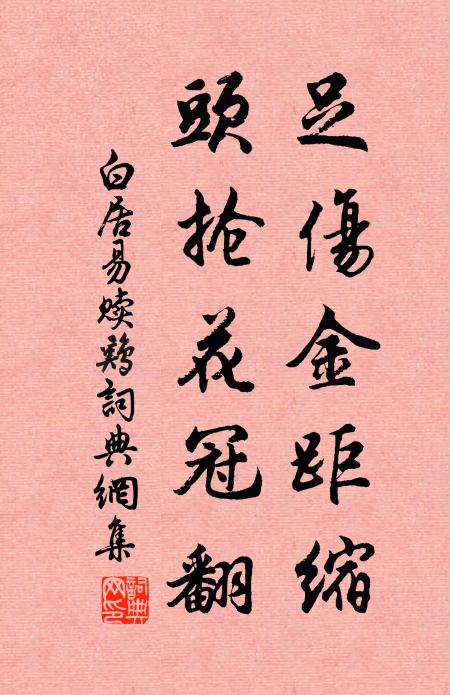 足傷金距縮
頭搶花冠翻
白居易贖鷄詞典網集
詞典網印